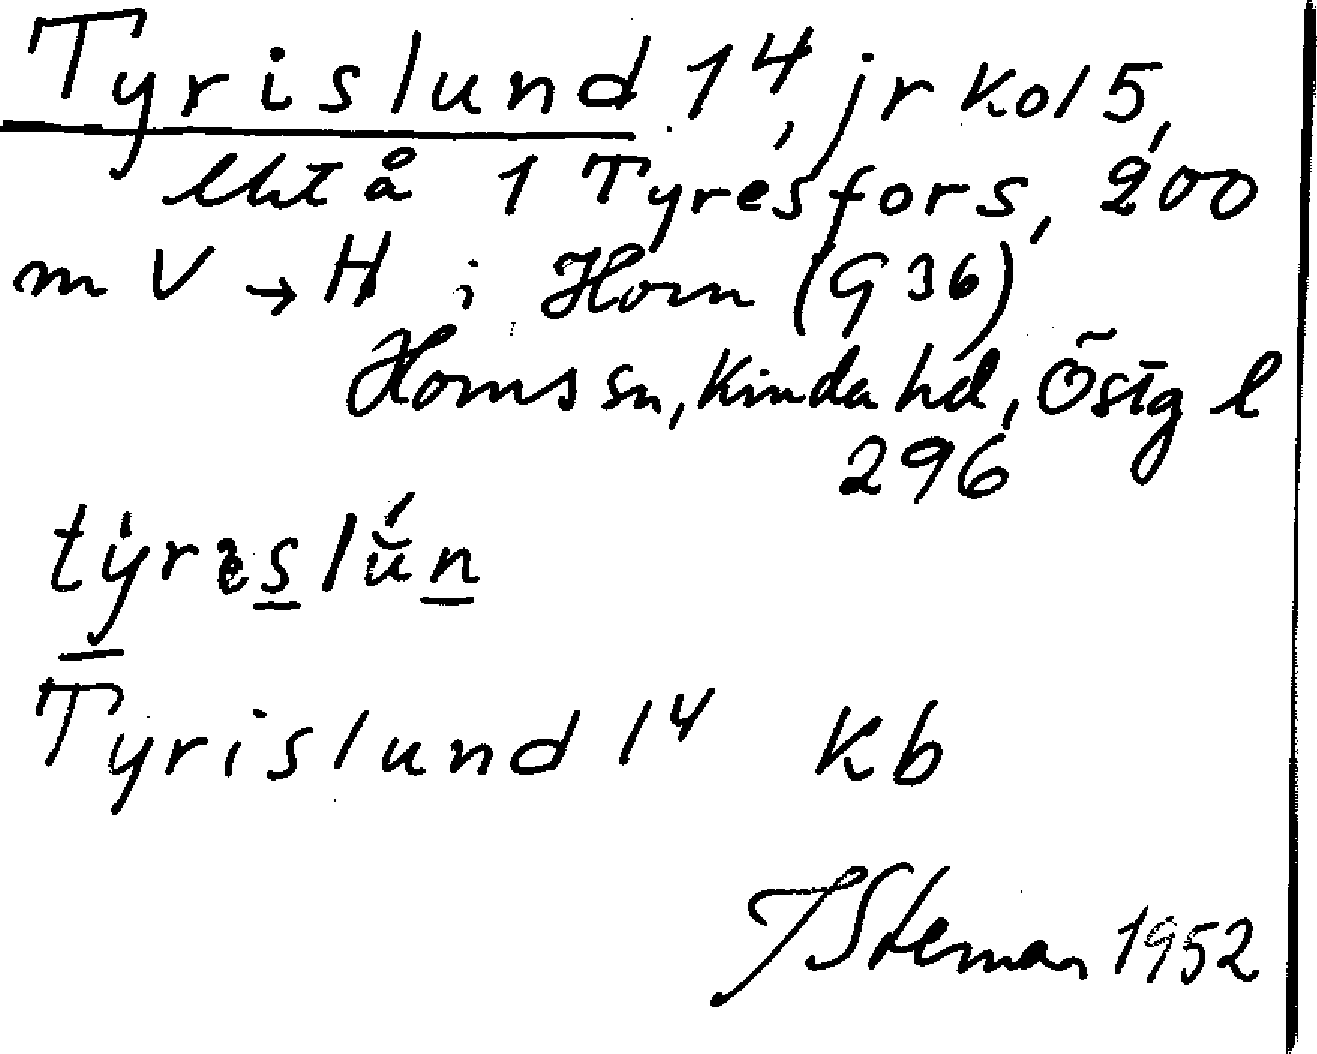 Tyrislund 1⁴, jr kol 5,
lht å 1 Tyresfors, 200
m V → H i Horn (G 36)
Horns sn, Kinda hd, Östg l
296
týrɛslún
Tyrislund 1⁴ Kb
Steman 1952